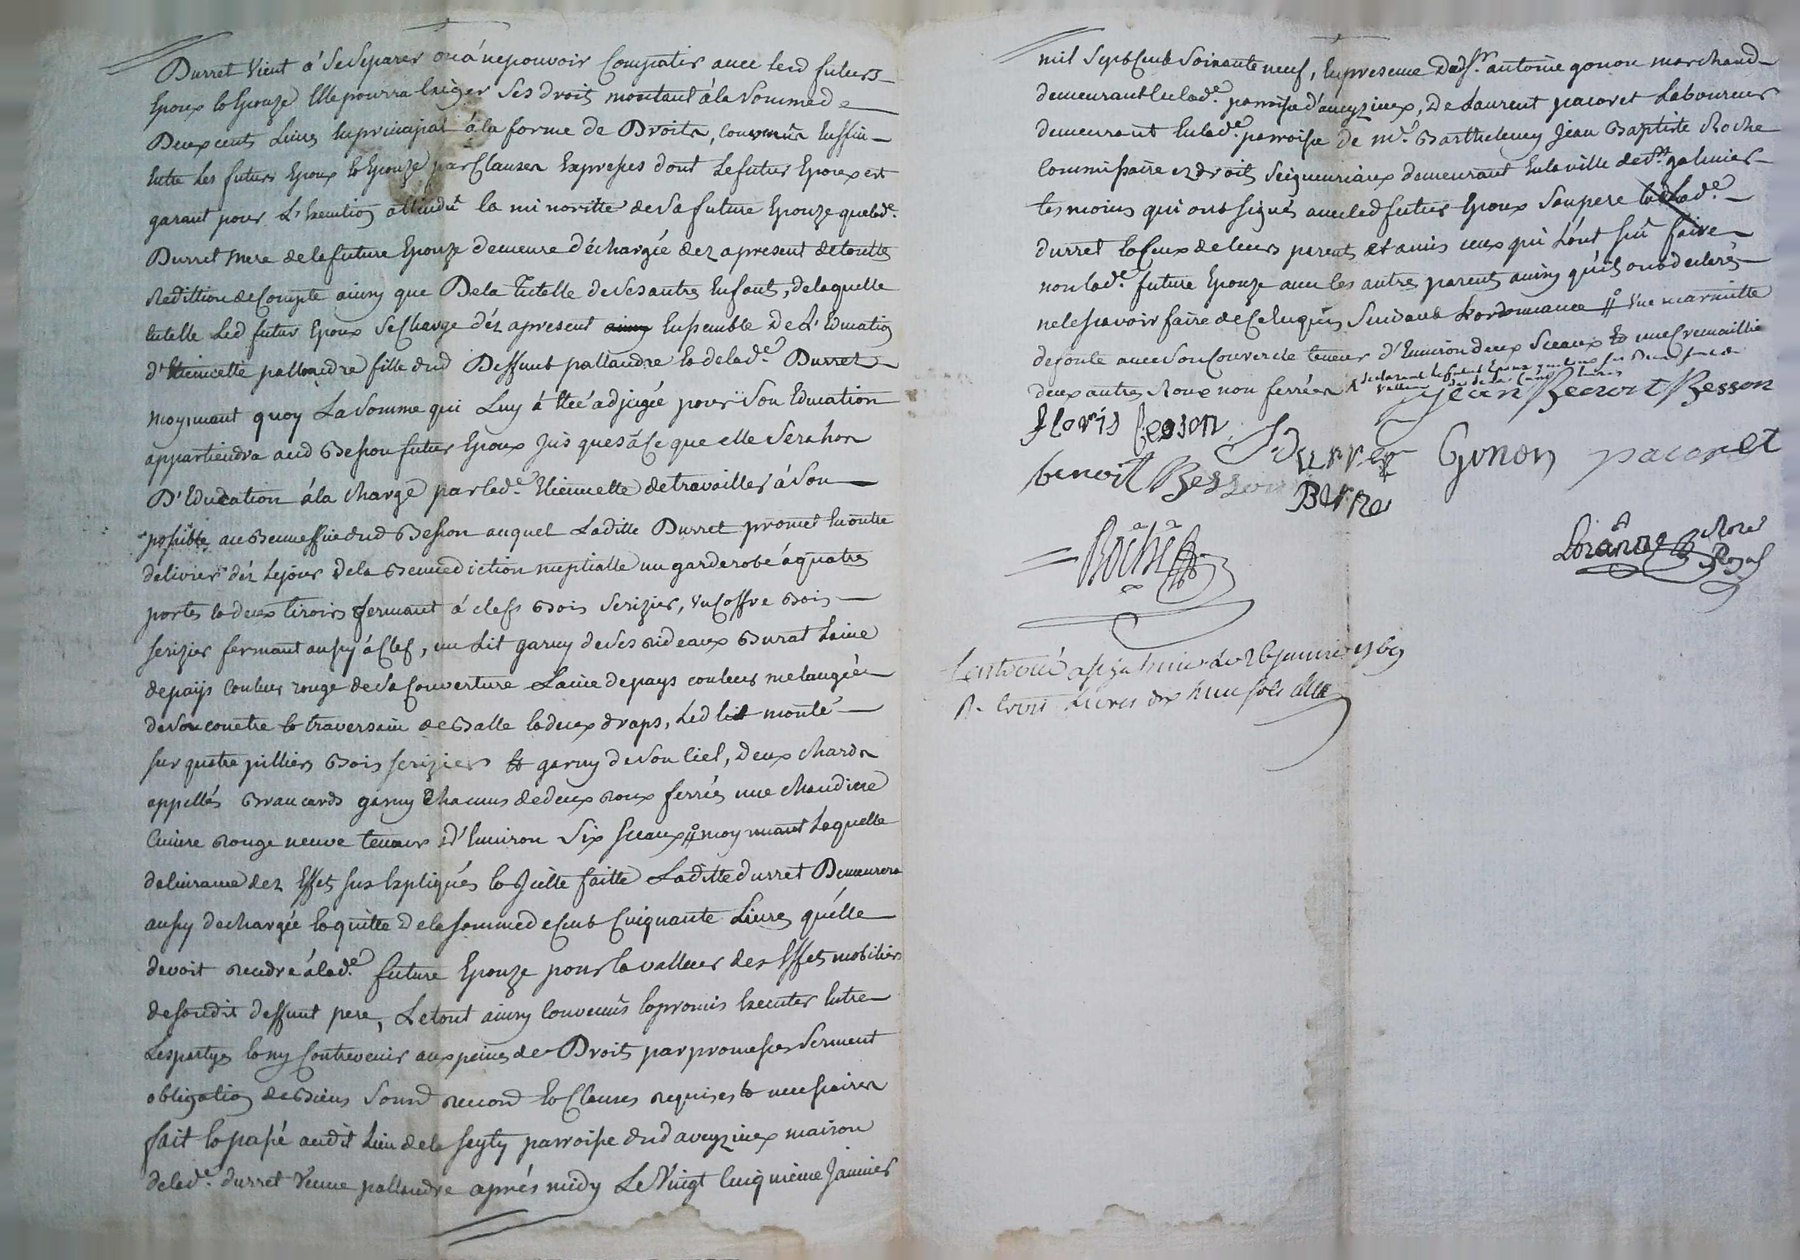 Durret vient á Se Separer ou á ne pouvoir Compatir avec lesd futurs
Epoux et Epouze Elle pourra Exiger Ses droit montant á la Somme de
Deux cents Livres En principal á la forme de Droits, Convenu Enffin
Entre Les futurs Epoux et Epouze par Clauses Expresses dont Le futur Epoux est
garant pour L'Execution attendu la minoritte de Sa future Epouze que lade.
Durret Mere de la future Epouze demeure déchargée dez apresent de toutte
Reddition de Compte ainsy que De la Tutelle de Ses autres Enfants, de laquelle
tutelle Led futur Epoux Se Charge déz apresent ainsy Ensemble De L'Education
d'Etiennette pallandre fille dud Deffunt pallandre et de lade. Durret
moyennant quoy La Somme qui Luy á Eté adjugée pour Son Education
appartiendra aud Besson futur Epoux jusques á Ce que elle Sera hors
D'Education á la Charge par lade. Etiennette de travailler á Son
possible au Beneffice dud Besson auquel Laditte Durret promet En outre
delivrer déz Le jour de la Benediction nuptialle un garderobe á quatre
portes et deux tiroirs fermant á clefs Bois Serizier, un Coffre Bois
Serizier fermant aussy á Clef, un Lit garny de Ses Rideaux Burat Laine
de païs Couleur rouge de Sa Couverture Laine de pays couleur melangée
de Son couetre et traversain de Balle et deux draps, Led lit monté
sur quatre pilliers Bois Serizier et garny de Son Ciel, Deux Chards
appellés Brancards garny Chacuns de deux Roux ferrées une chaudiere
Cuivre Rouge neuve teneur D'Environ Six Sceaux # moyennant Laquelle
delivrance dez Effet sus Expliqués et Icelle faitte Laditte durret Demeurera
aussy dechargée et quitte De la Somme de Cent Cinquante Livres qu'elle
devoit Rendre á lade. future Epouze pour la valleur des Effets mobiliers
de Sondit deffunt pere, Le tout ainsy Convenus et promis Executer Entre
Les partyes et ny Contrevenir aux peines de Droits par promesses Serment
obligation de Biens Soumd Renond et Clauses Requises et necessaires
fait et passé audit Lieu de la Seyty parroisse dud aveyzieux maison
de lade. durret veuve pallandre aprés midy Le Vingt Cinquieme Janvier
mil Sept Cent Soixante neuf, En presence Dud Sr. antoine gonon marchand
demeurant En lade. parroisse d'aveyzieux, De Laurent pacoret Laboureur
demeurant En lade. parroisse de Mr. Barthelemy Jean Baptiste Roche
Commissaire ez droits Seigneuriaux demeurant En la ville de St. galmier
tesmoins qui ont Signés avec led futur Epoux Son pere et lade.
durret et Ceux de leurs parents et amis ceux qui L'ont sçu faire
non lade. future Epouze avec les autre parent ainsy qu'ils ont declarés
ne le scavoir faire de Ce Enquis Suivant L'ordonnance # Une marmitte
de fonte avec Son Couvercle teneur d'Environ deux Sceaux et une Cremaillie
deux autres Roux non ferrées
Jean Benoit Besson
Floris Besson
Durret
Gonon
pacoret
benoit Besson
Berne
Roche
Notre
Royal